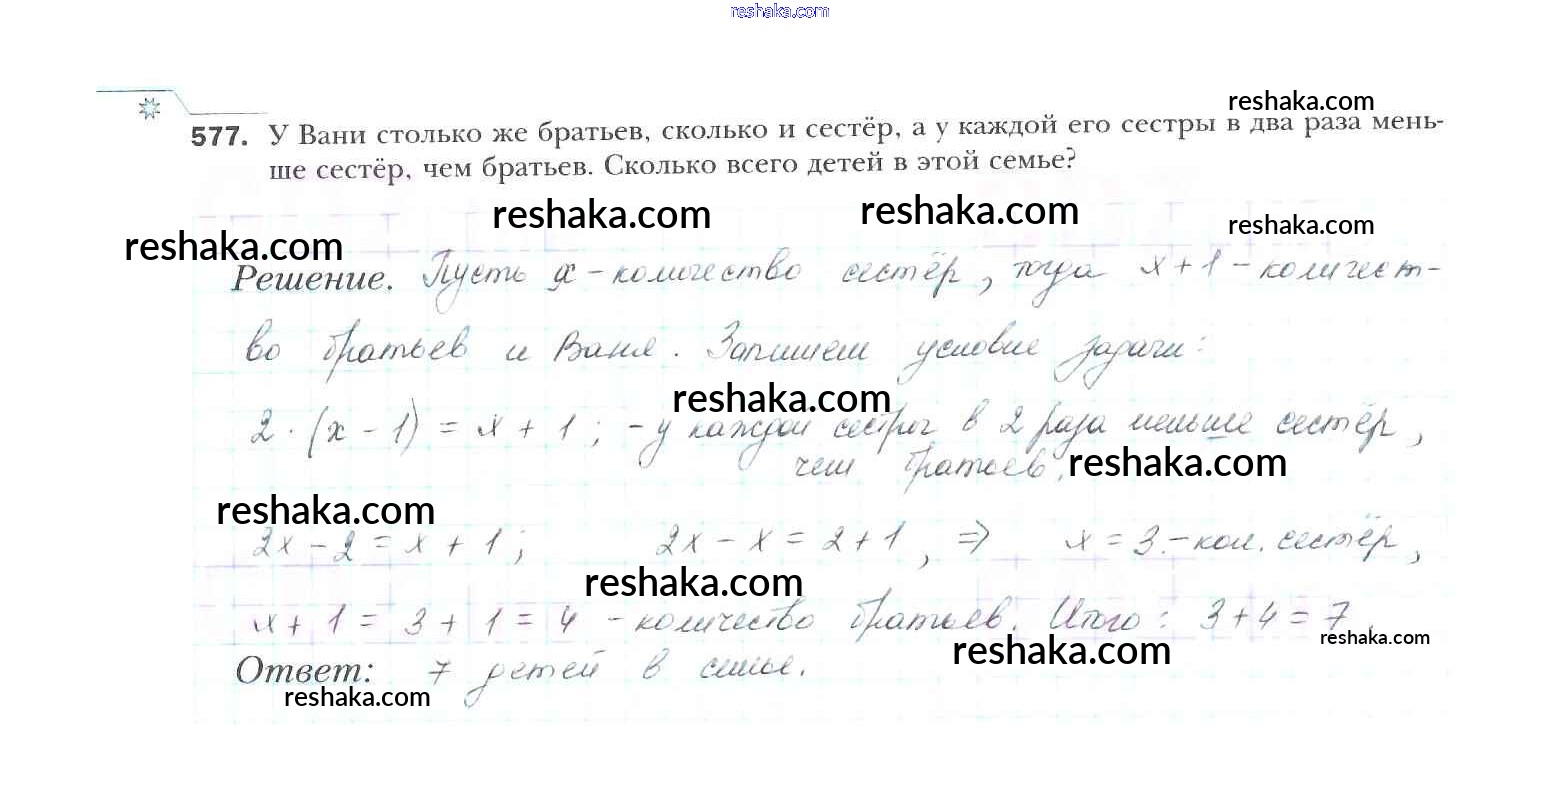 reshaka.com
reshaka.com
577. У Вани столько же братьев, сколько и сестёр, а у каждой его сестры в два раза мень-
ше сестёр, чем братьев. Сколько всего детей в этой семье?
reshaka.com
reshaka.com
reshaka.com
reshaka.com
Решение. Пусть x - количество сестёр, тогда x + 1 - количест-
во братьев и Ваня. Запишем условие задачи:
reshaka.com
2 · (x - 1) = x + 1; - у каждой сестры в 2 раза меньше сестёр,
чем братьев.
reshaka.com
reshaka.com
2x - 2 = x + 1; 2x - x = 2 + 1, => x = 3 - кол. сестёр,
reshaka.com
x + 1 = 3 + 1 = 4 - количество братьев. Итого: 3 + 4 = 7
reshaka.com
reshaka.com
Ответ: 7 детей в семье.
reshaka.com